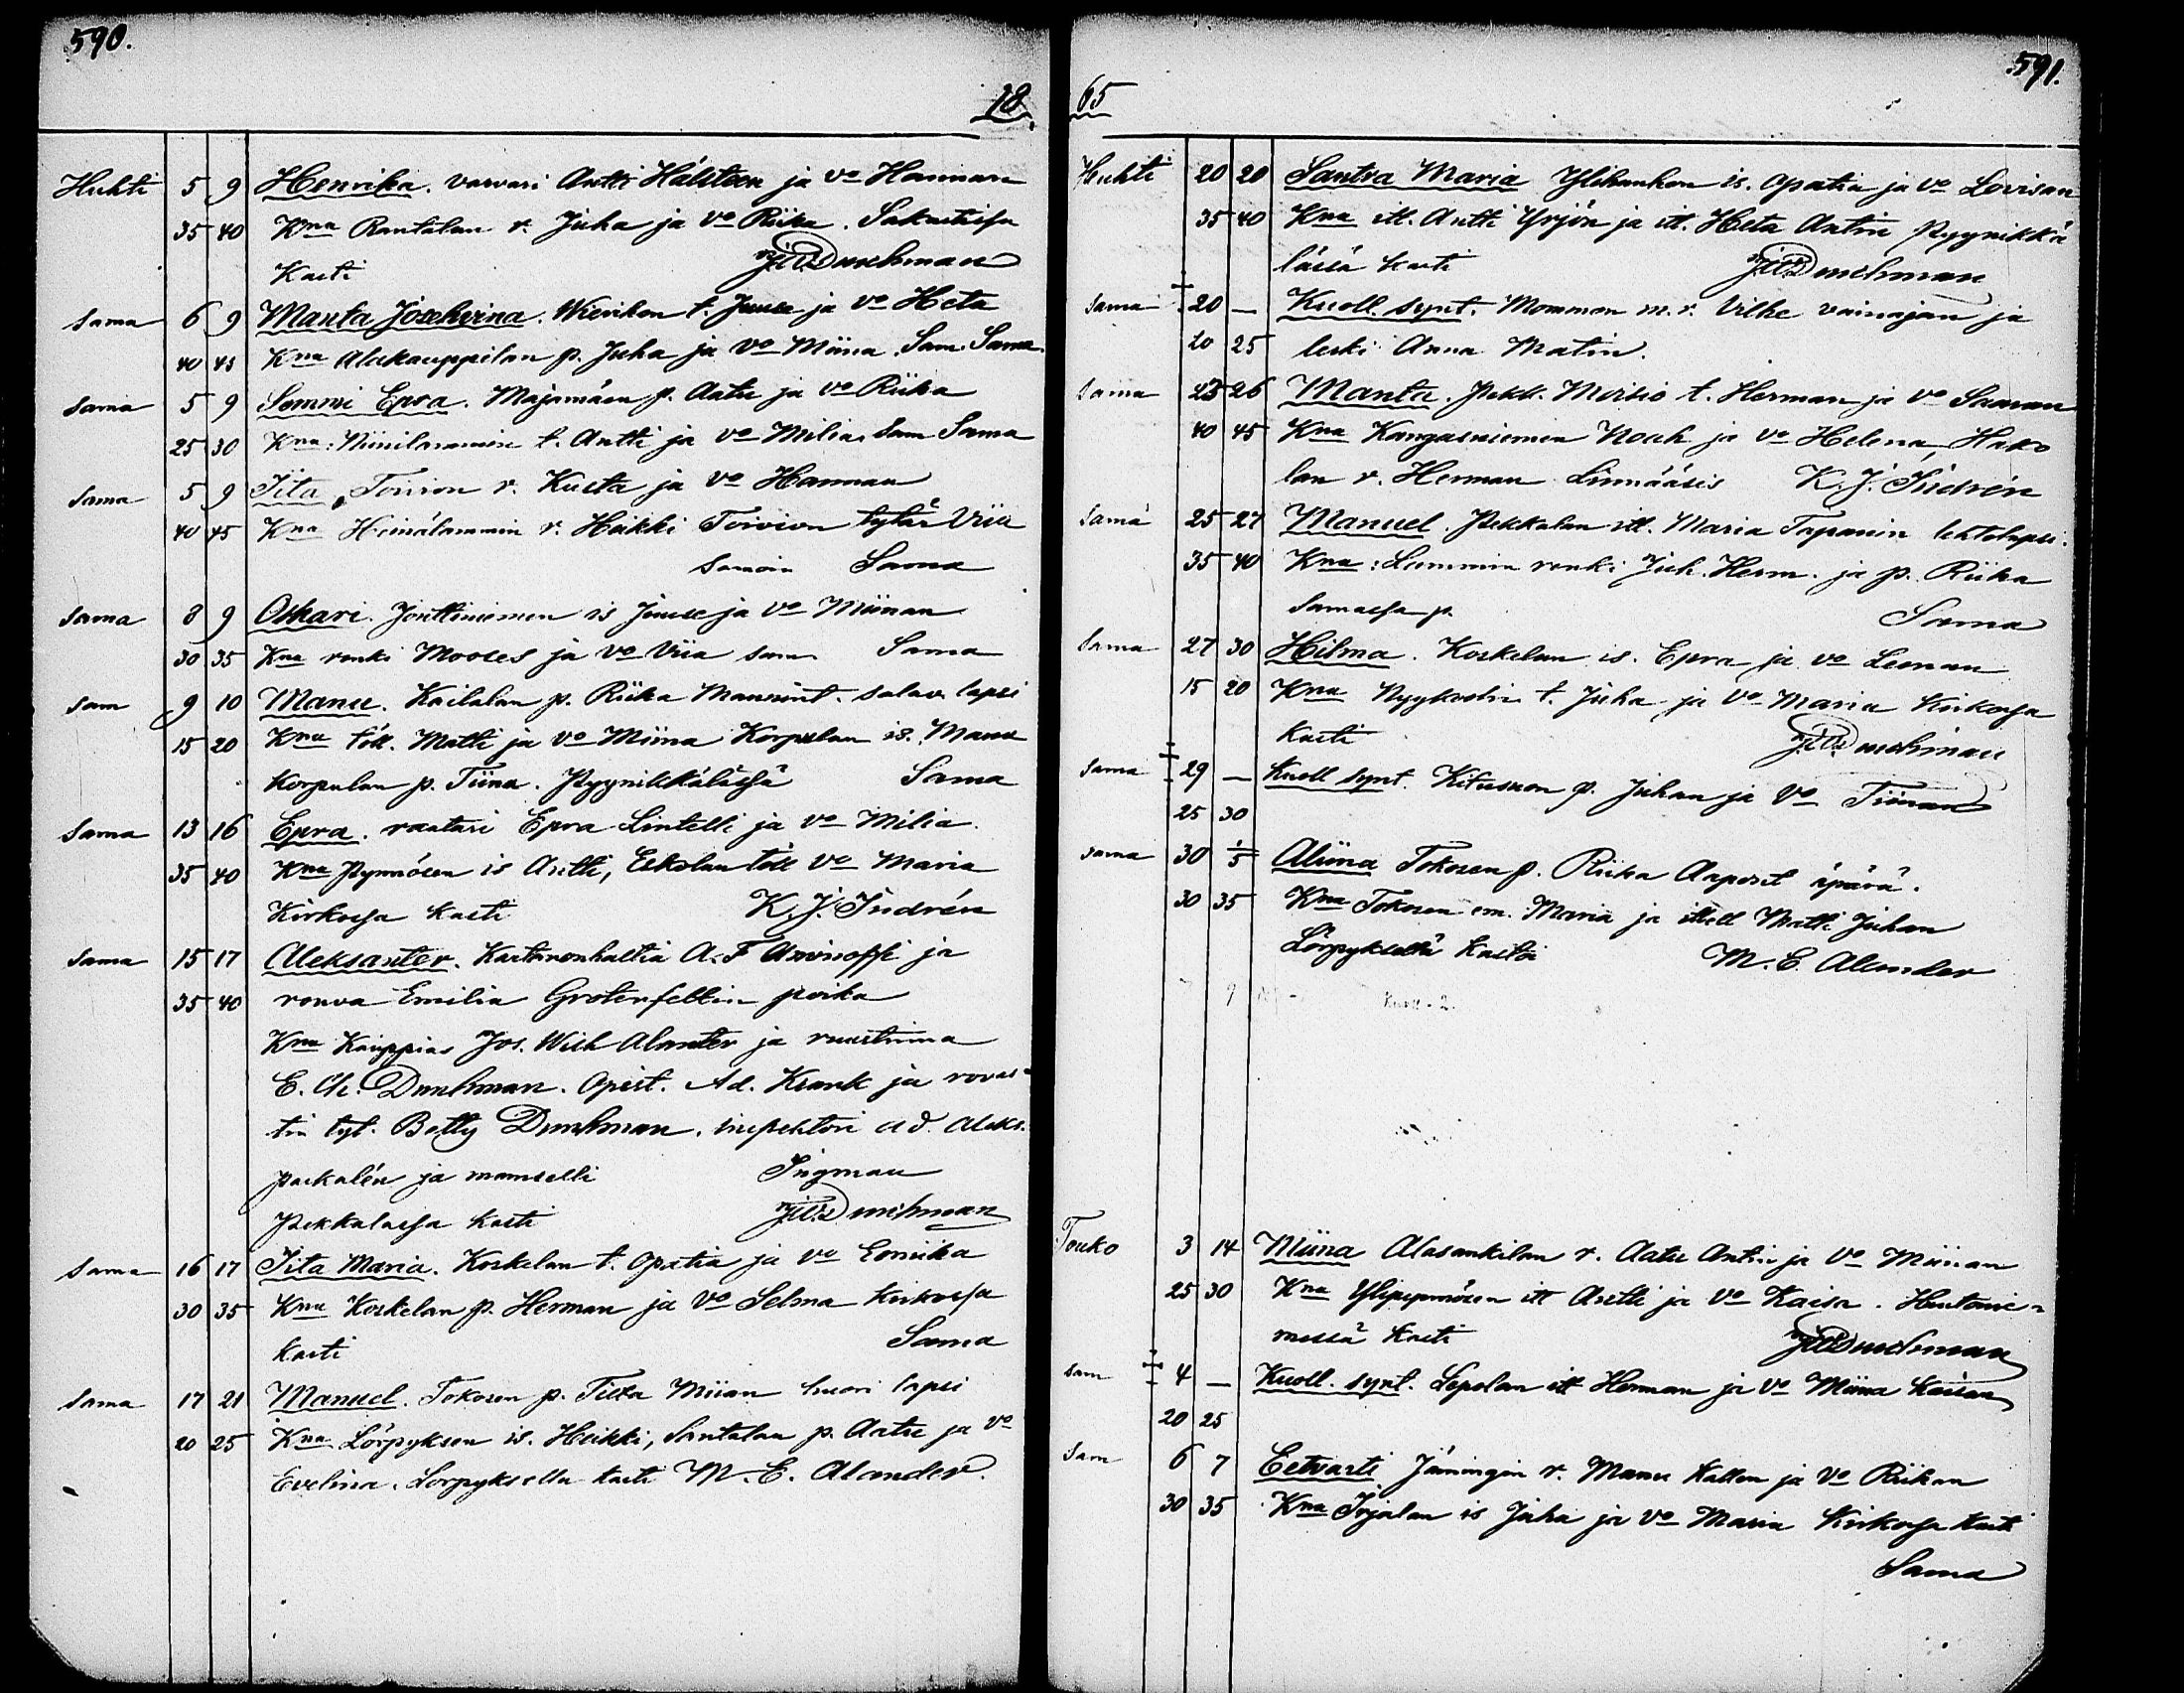 590.
18
Huhti 5 9 Henrika. varvari Antti Hälsteen ja vo Hannan
35 40 Kna Rantalan r. Juha ja vo Riika.
Kasti
Sama 6 9 Manta Josehvina. t. Juuse ja vo Heta
40 45 Kna Alakauppilan p. Juha ja vo Miina. Sam. Sama
Sama 5 9 Sommi Epra. Majamäen p. Aatu ja vo Riika
25 30 Kna: t. Antti ja vo Milia. Sam Sama
Sama 5 9 Iita, Toivion r. Kusta ja vo Hannan
40 45 Kna Heinälammin r. Heikki Toivion tytär Viia
Samoin Sama
Sama 8 9 Oskari. Jouttiniemen is Juuse ja vo Miinan
30 35 Kna renki Mooses ja vo Viia sam Sama
Sam 9 10 Manu. Kailalan p. Riika salav. lapsi
15 20 Kna töll. Matti ja vo Miina Korpulan is. Manu
Korpulan p. Tiina. Pyynikkälässä Sama
Sama 13 16 Epra. raatari Epra Lintelli ja vo Milia.
35 40 Kna Pynnösen is Antti, Eskolan töll vo Maria
Kirkossa kasti K. J. Indrén
Sama 15 17 Aleksanter. Kartanonhaltia A. F. Aminoffi ja
35 40 rouva Emilia Grotenfeltin poika
Kna Kauppias Jos. Wilh Alanter ja ruustinna
E. Ch. Dunkman. Opist. Ad. Krank ja rovas-
tin tyt. Betty Dunkman. inspehtori Ad. Aleks.
ja mamselli Ingman
Pekkalassa kasti
Sama 16 17 Iita Maria. Koskelan t. Opatia ja vo Enriika
30 35 Kna Koskelan p. Herman ja vo Selma kirkossa
kasti Sama
Sama 17 21 Manuel. Tokosen p. Miian huori lapsi
20 25 Kna Lörpyksen is. Heikki, Santalan p. Aatu ja vo
Evelina. Lörpyksellä kasti M. E. Alander.
591.
65
Huhti 20 20 Santra Maria Ylihankon is. Opatia ja vo Lovisan
35 40 Kna itl. Antti Yrjön ja itl. Heta Antin Pyynikkä
lässä kasti
Sama ‡ 20 — Kuoll. synt. Mommon m. r. Vilhe vainajan ja
20 25 leski Anna Matin.
Sama 23 26 Manta. Pekk. t. Herman ja vo Saaran
40 45 Kna Kangasniemen Noah ja vo Helena, Hako
lan r. Herman K. J. Indrén
Sama 25 27 Manuel. Pekkalan itl. Maria Tapanin lehtolapsi.
35 40 Kna: Lammin renki Juh. Herm. ja p. Riika
samassa p. Sama
Sama 27 30 Hilma. Koskelan is. Epra ja vo Leenan
15 20 Kna t. Juha ja vo Maria Kirkossa
Kasti
Sama ‡ 29 — Kuoll synt. Kitusuon p. Juhan ja vo Tiinan
25 30
Sama 30 1/5 Aliina Tokosen p. Riika äpärä.
30 35 Kna Tokosen em. Maria ja itsell Matti Juhan
Lörpyksellä kasti M. E. Alander
Kuoll - 2.
Touko 3 14 Miina Alasankilan r. Aatu Antin ja vo Miinan
25 30 Kna Ylipynnösen itl Antti ja vo Kaisa. Huttonie-
messä kasti
sam ‡ 4 — Kuoll. synt. Lepolan itl Herman ja vo Miina Kaisan
20 25
Sam 6 7 Eetvarti Jämingin r. Manu Kallen ja vo Riikan
30 35 Kna Irjalan is Juha ja vo Maria Kirkossa kasti
Sama